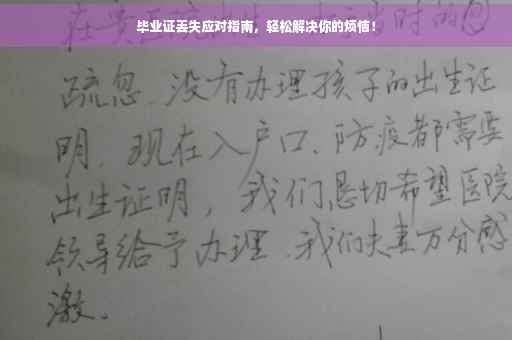 毕业证丢失应对指南，轻松解决你的烦恼！
在贵医院出生，当时的
疏忽、没有办理孩子的出生证
明。现在入户口、防疫都需要
出生证明，我们恳切希望医院
领导给予办理，我们夫妻万分感
激。